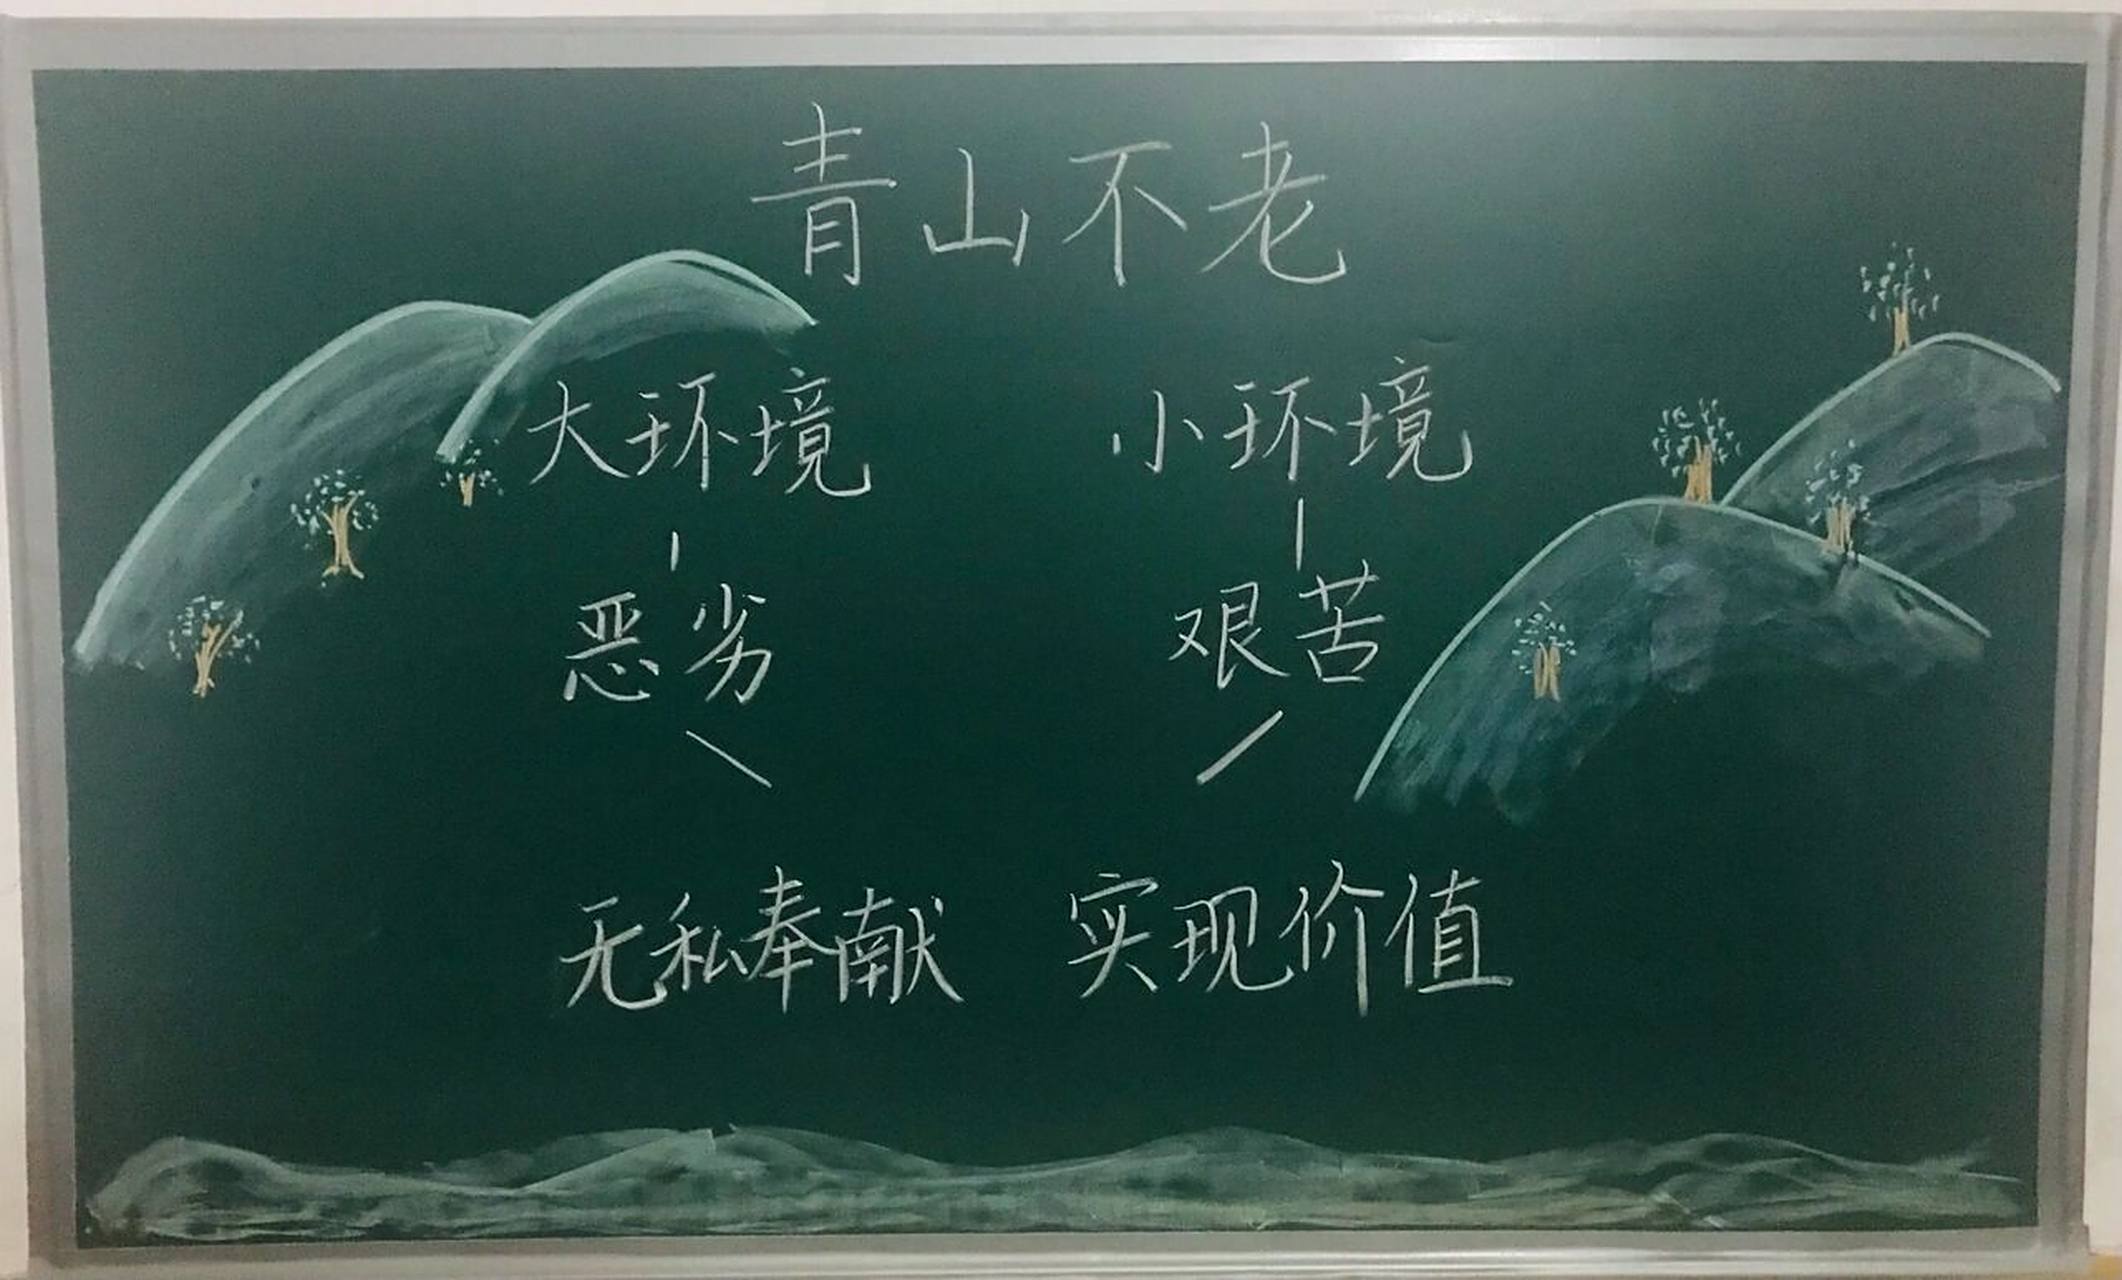 青山不老
大环境 小环境
恶劣 艰苦
无私奉献 实现价值